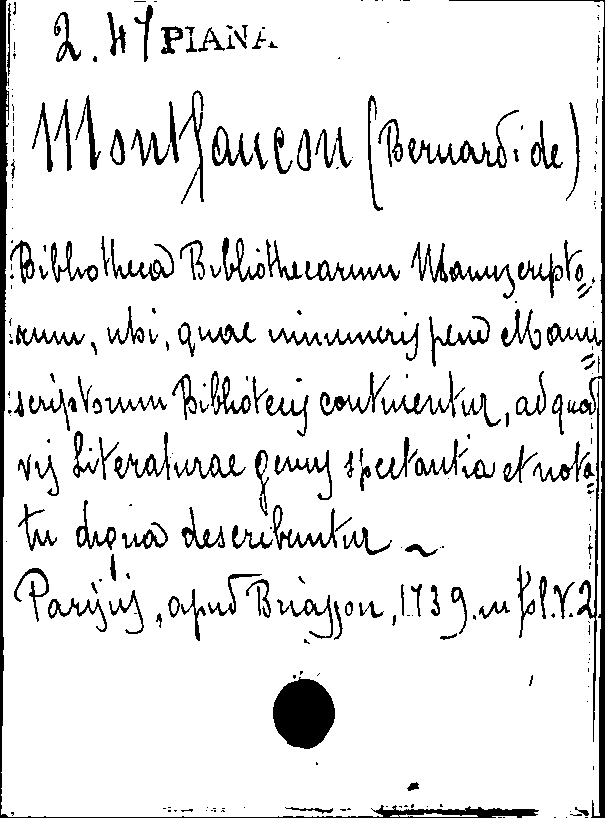 2.47 PIANA
Montfaucon (Bernardi de)
Bibliotheca Bibliothecarum Manuscripto=
rum, ubi, quae innumeris pene Manu=
scriptorum Bibliotecis continentur, ad quod
vis Literaturae genus spectantia et nota=
tu digna describuntur ~
Parisiis, apud Briasson, 1739. in fol. V. 2.